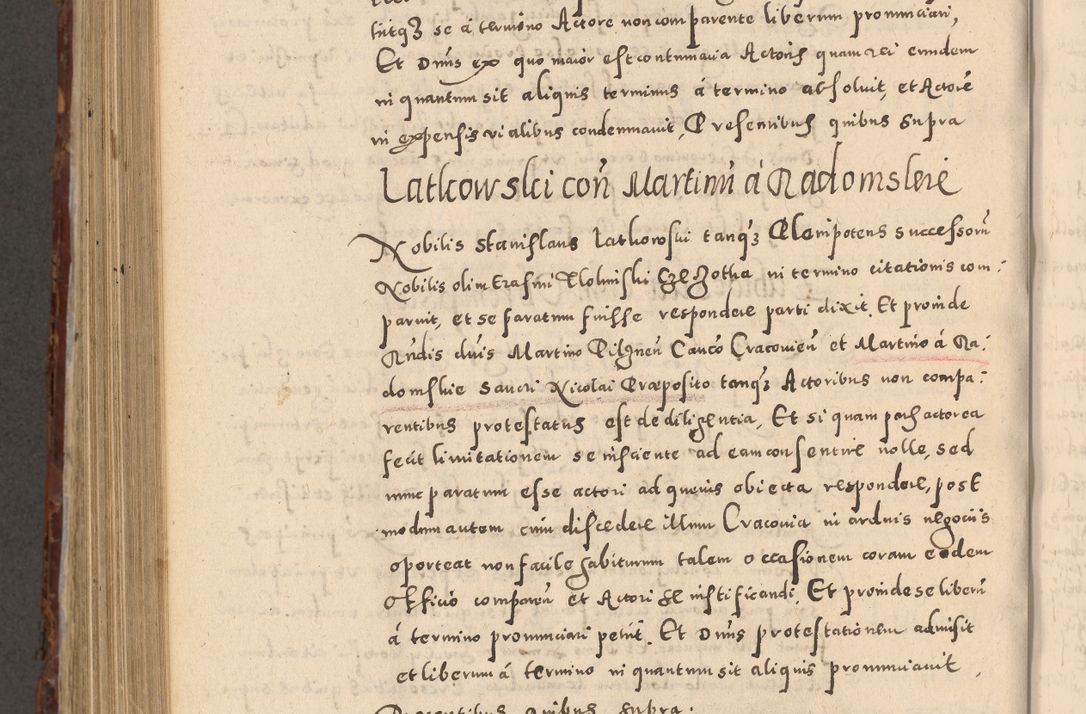 titqꝫ se á termino Actore non comparente liberum pronunciari,
Et Dnus ex quo maior est contumacia Actoris quam rei eundem
in quantum sit aliquis terminus á termino absoluit, et Actorē
in expensis vialibus condemnauit, Presentibus quibus supra
Latkowski con̄ Martinū á Radomskie
Nobilis Stanislaus Latkowski tanqꝫ Plenipotens successorū
Nobilis olim Erasmi in termino citationis com:
paruit, et se paratum fuisse respondere parti dixit. Et proinde
Rndis dnis Martino Pilznen̄ Canco Cracouien̄ et Martino á Ra:
domskie Sancti Nicolai Præposito tanqꝫ Actoribus non compa:
rentibus protestatus est de diligentia, Et si quam pars actorea
fecit limitationem se insciente ad eam consentire nolle, sed
nunc paratum esse actori ad queuis obiecta respondere, post
modum autem cum discedere illum Cracouia in arduis negociis
oporteat non facile habiturum talem occasionem coram eodem
Officio comparen̄ et Actori se iustificandi, Et proinde se liberū
á termino pronunciari petiit. Et Dnus protestationem admisit
et liberum á termino in quantum sit aliquis pronunciauit,
Presentibus quibus supra.